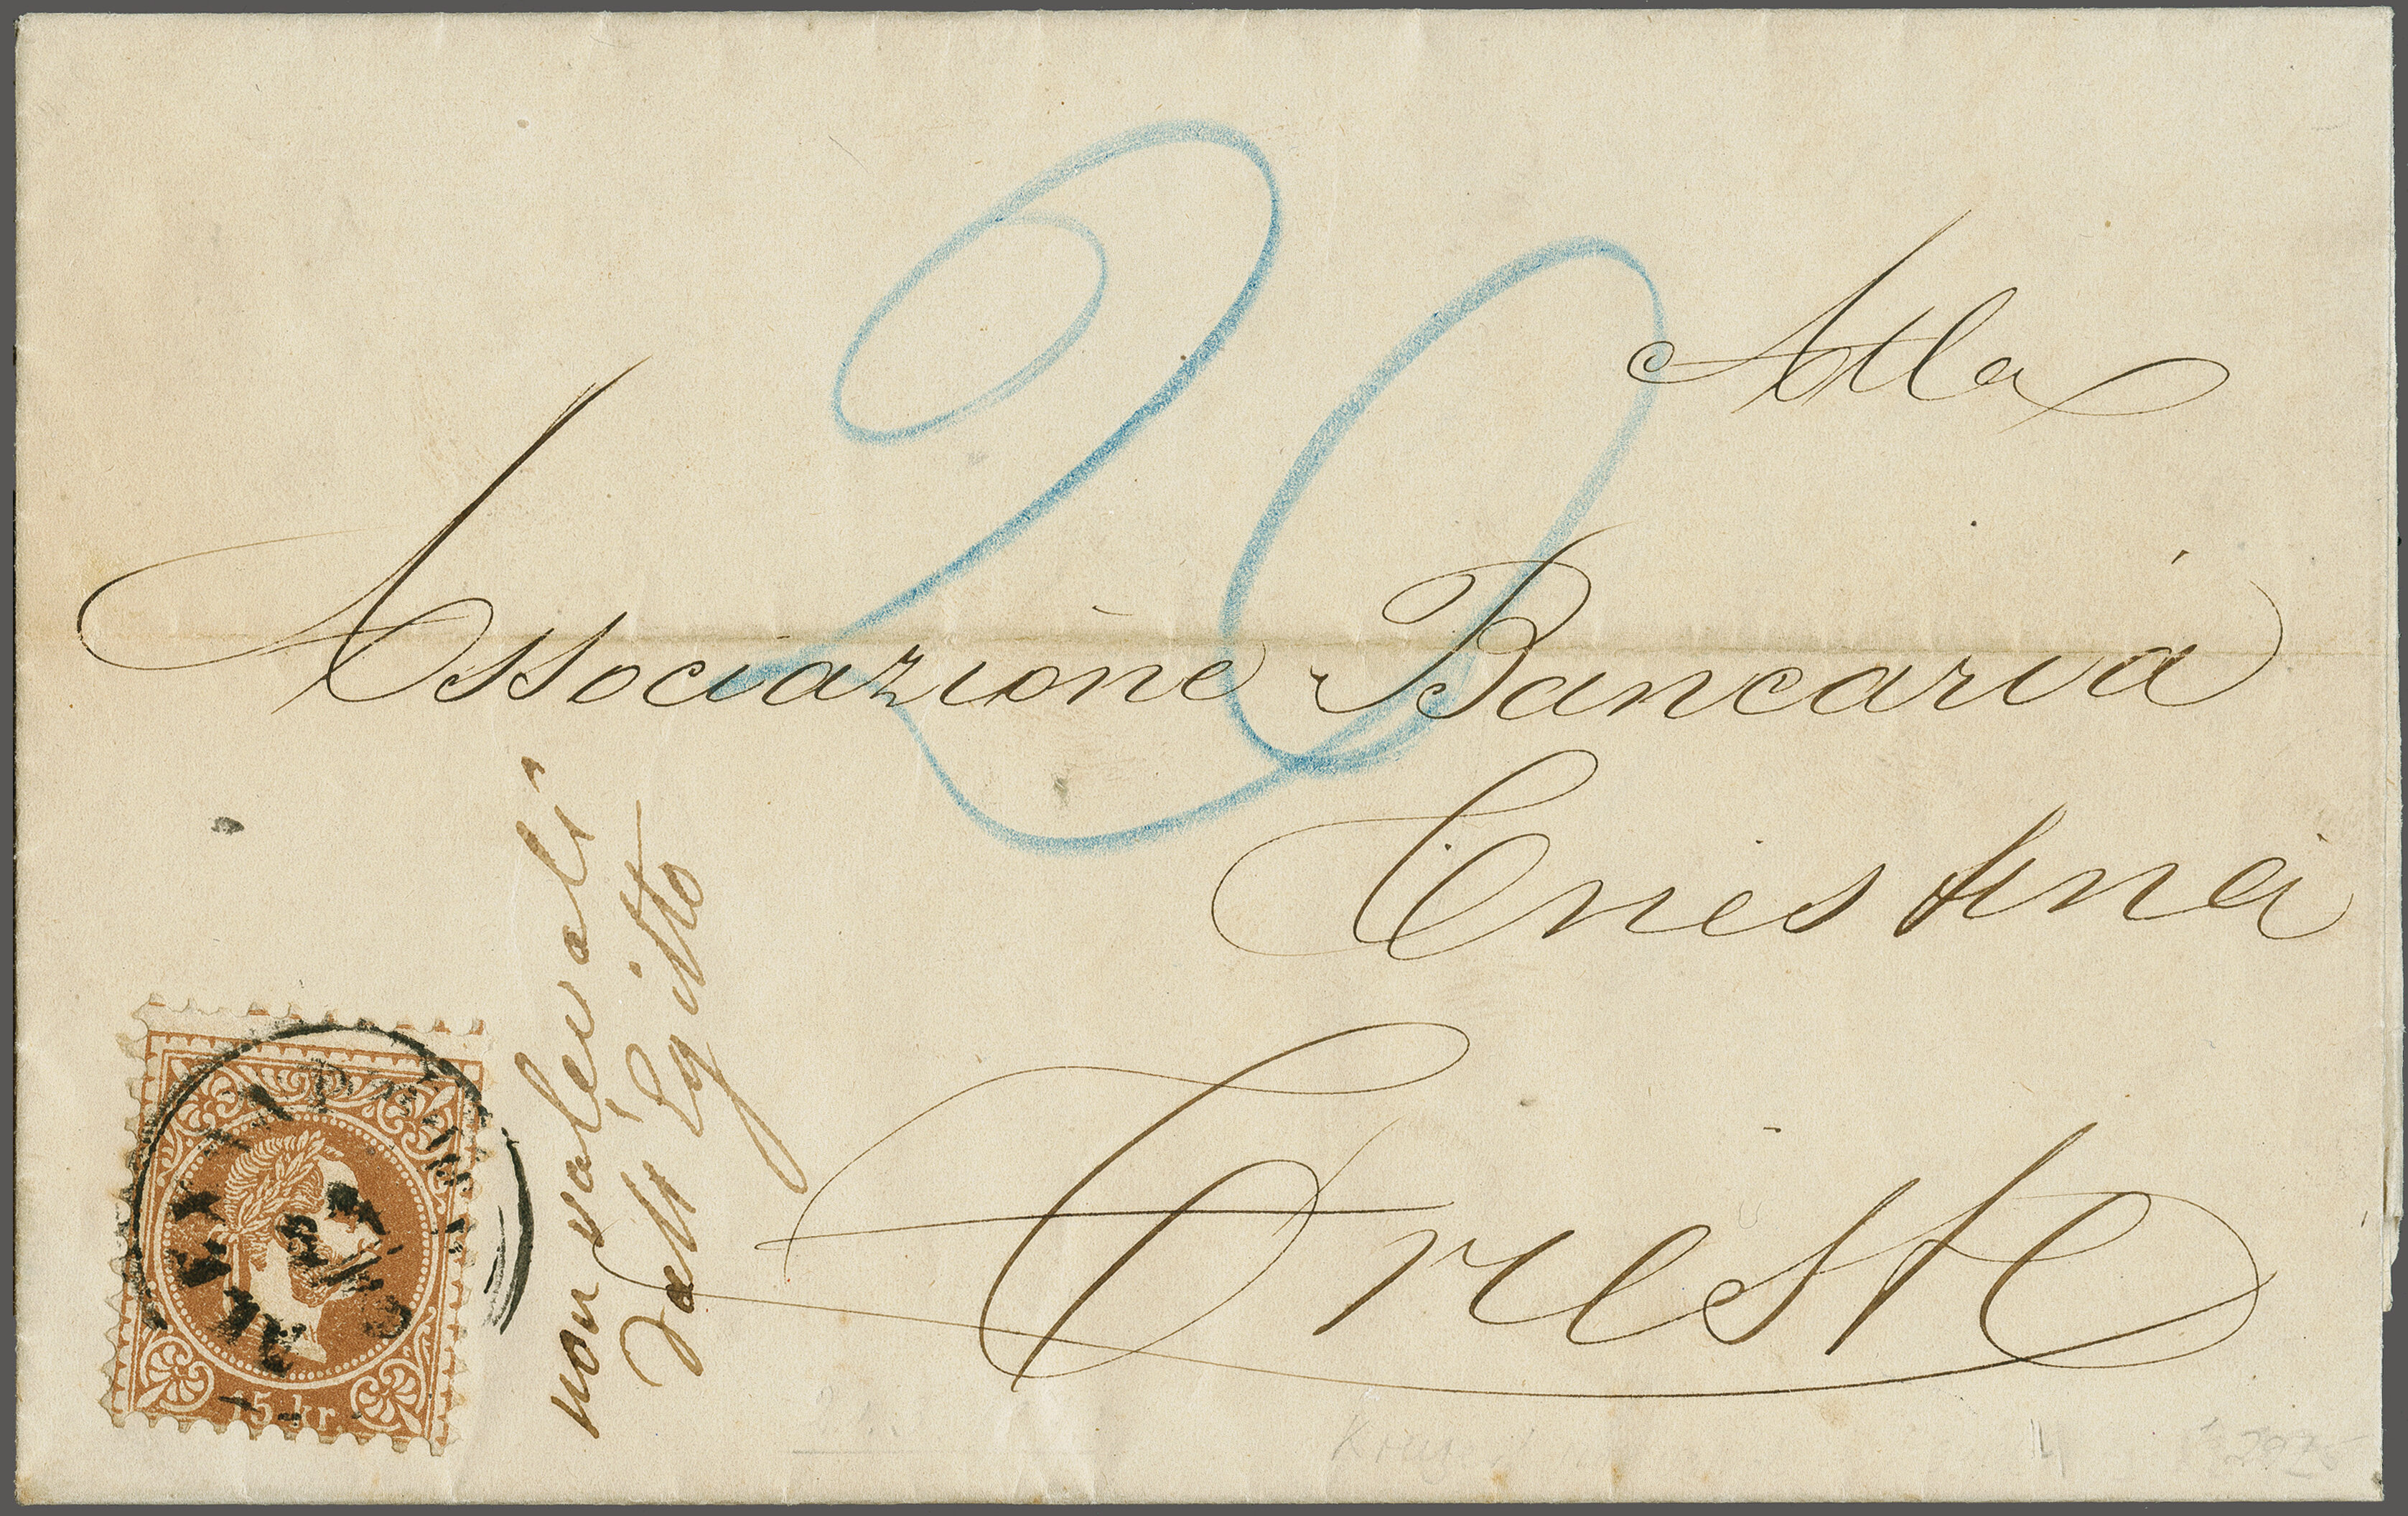 20
Alla
Associazione Bancaria
Triestina
Trieste
non valevoli
dall' Egitto
15 kr